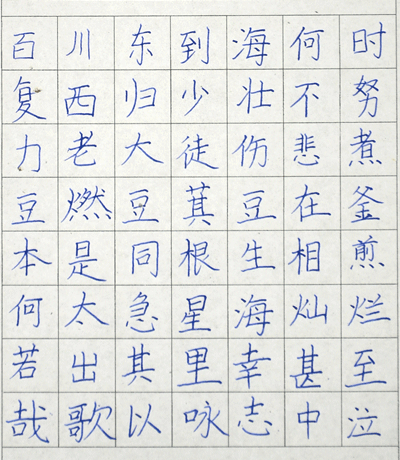 百川东到海何时
复西归少壮不努
力老大徒伤悲煮
豆燃豆萁豆在釜
本是同根生相煎
何太急星海灿烂
若出其里幸甚至
哉歌以咏志中泣